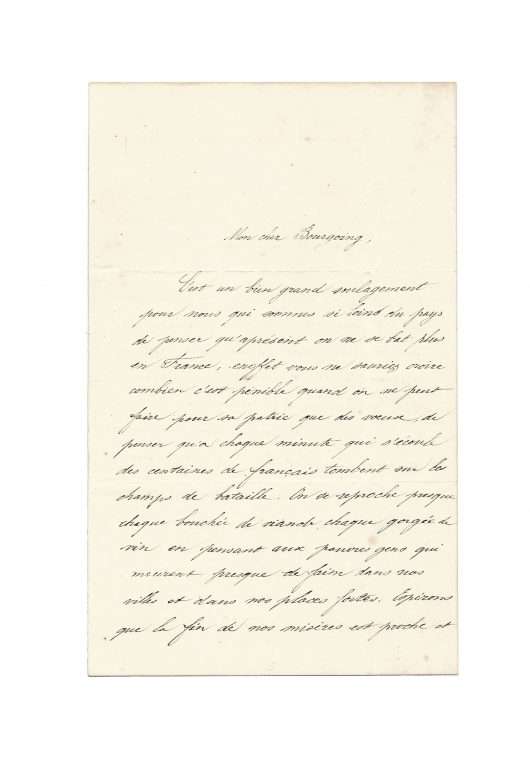 Mon cher Bourgoing,
C'est un bien grand soulagement
pour nous qui sommes si loind du pays
de penser qu'aprésent on ne se bat plus
en France, eneffet vous ne sauriez croire
combien c'est pénible quand on ne peut
faire pour sa patrie que des vœux, de
penser qu'a chaque minute qui s'écoule
des centaines de français tombent sur les
champs de bataille. On se reproche presque
chaque bouchée de viande, chaque gorgée de
vin en pensant aux pauvres gens qui
meurent presque de faim dans nos
villes et dans nos places fortes. Espérons
que la fin de nos misères est proche et